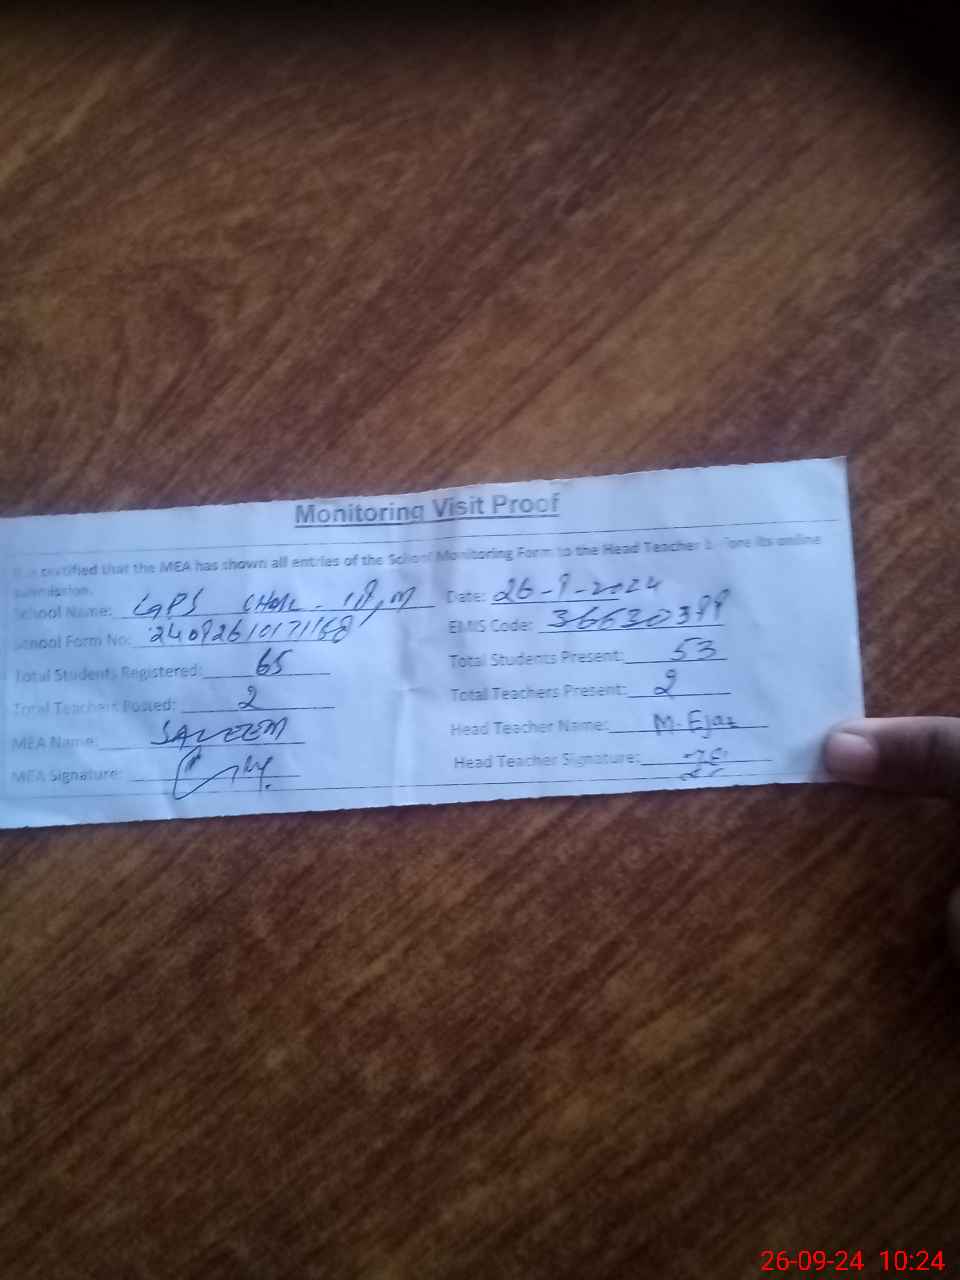 Monitoring Visit Proof
It is certified that the MEA has shown all entries of the School Monitoring Form to the Head Teacher before its online
submission.
School Name: GPS Date: 26-9-2024
School Form No: EMIS Code: 36630399
Total Students Registered: 65 Total Students Present: 53
Total Teachers Posted: 2 Total Teachers Present: 2
MEA Name: SALEEM Head Teacher Name: M. Ejaz
MEA Signature: Head Teacher Signature:
26-09-24 10:24